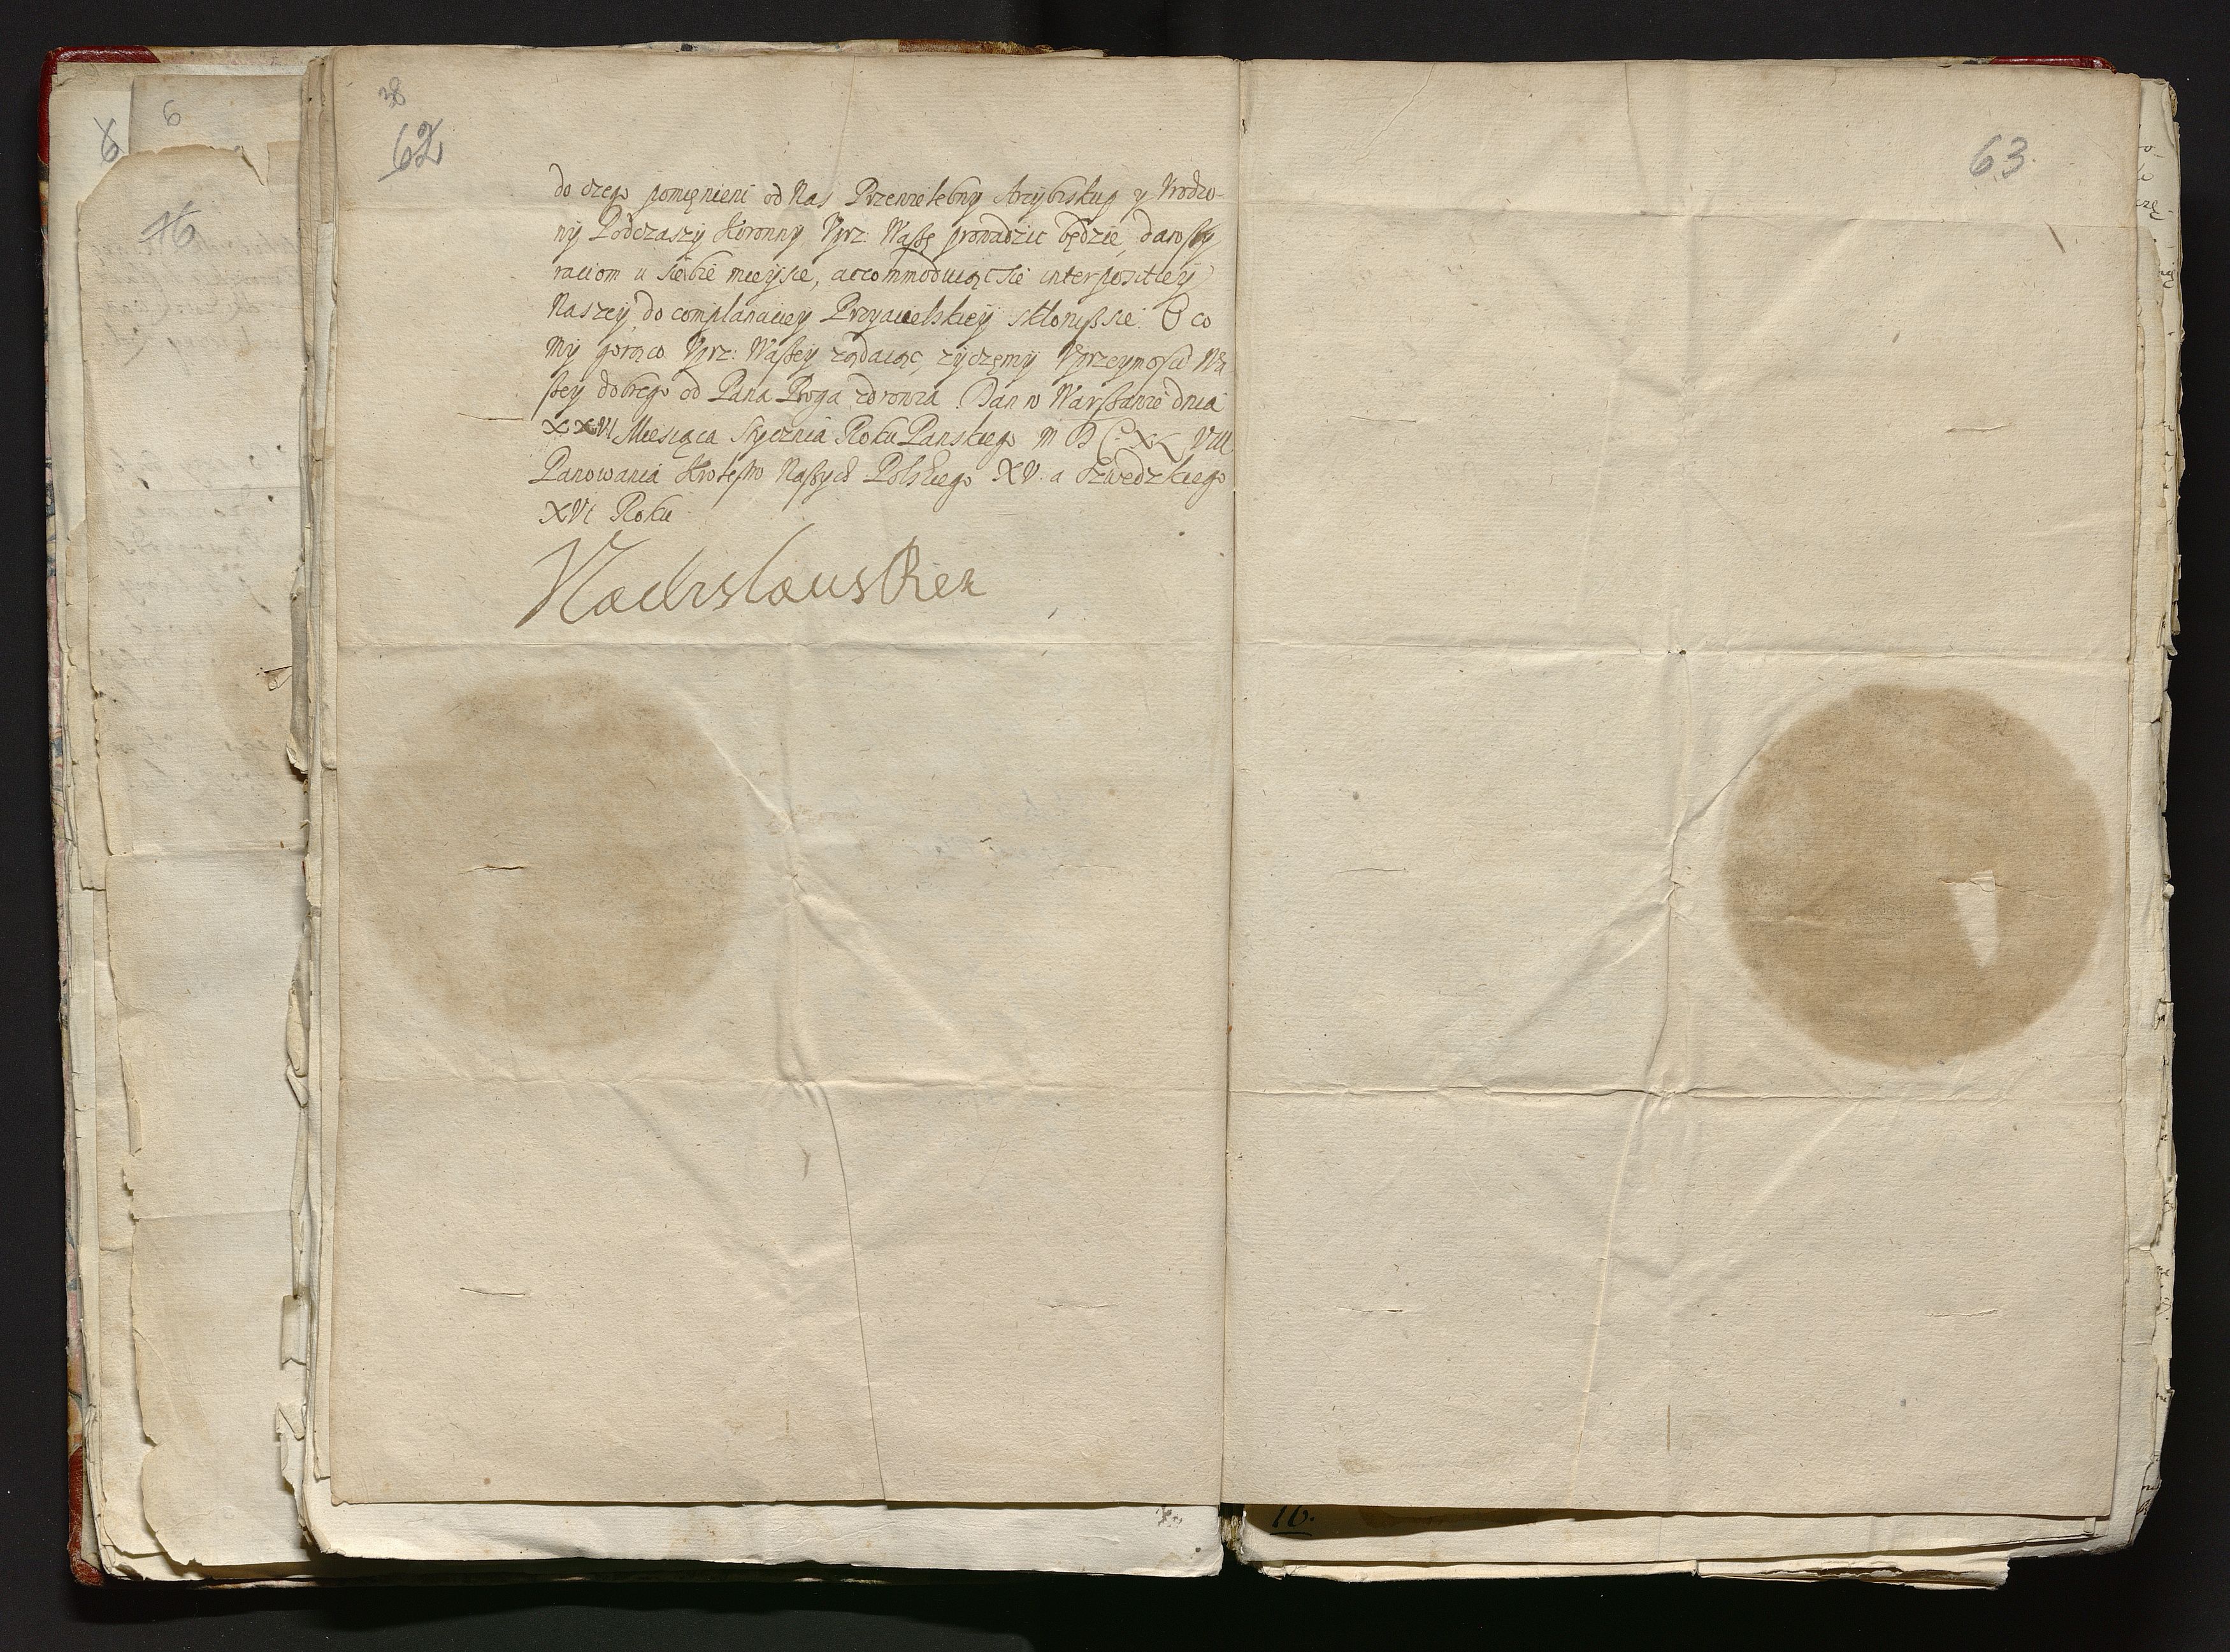 38
62
63.
6
6
16
do czego pomięnieni od Nas Przewielebny Arcybiskup y Urodzo-
ny Podczaszy Koronny Uprz: Waßę prowadzic będzie, dawßy
raciom u siebie mieysce, accommoduiąc sie interpositiey
Naszey, do complanaciey Przyacielskiey skłonißsie. O co
my gorąco Uprz: Waßey ządaiąc, zyczęmy Uprzeymosci Wa
ßey dobrego od Pana Boga zdrowia. Dan w Warßawie dnia
XXVI Miesiąca Stycznia Roku Panskiego M D C XL VIII
Panowania Krolestw Naßych Polskiego XV. a Szwedzkiego
XVI Roku
Vladislaus Rex
16.